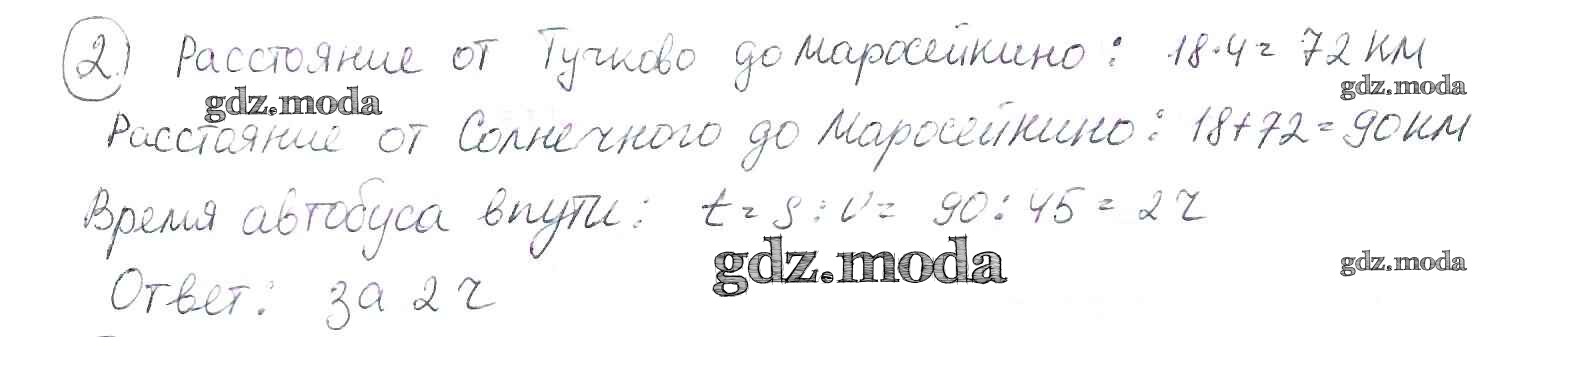 2. Расстояние от Тучково до Маросейкино: 18·4= 72 км
gdz.moda
gdz.moda
Расстояние от Солнечного до Маросейкино: 18+72=90км
Время автобуса в пути: t = S : v = 90 : 45 = 2 ч
gdz.moda
gdz.moda
Ответ: за 2 ч